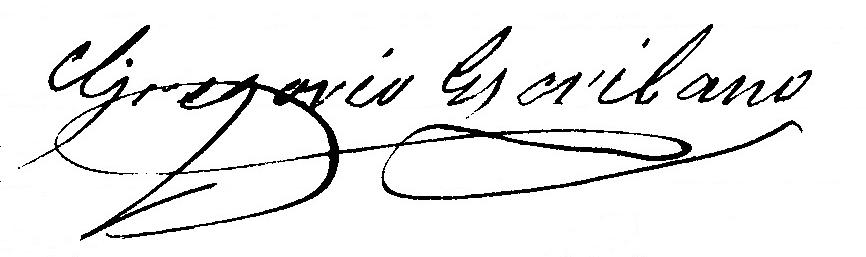 Gregorio Escribano